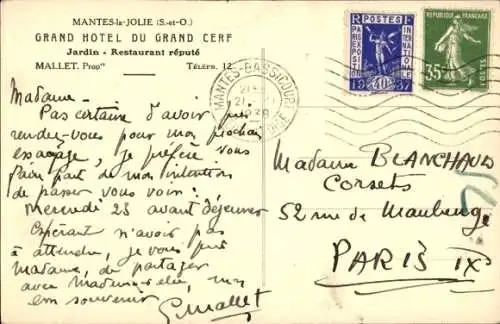 MANTES-la-JOLIE (S.-et-O.)
GRAND HOTEL DU GRAND CERF
Jardin - Restaurant réputé
MALLET, Propre TÉLÉPH. 12
RF POSTES
PARIS EXPOSITION INTERNATIONALE
1937
40c
REPUBLIQUE FRANÇAISE
35c
POSTES
MANTES-GASSICOURT
21
Madame -
Pas certaine d'avoir pris
rendez-vous pour mon prochain
essayage, je préfère vous
faire part de mon intention
de passer vous voir :
Mercredi 23 avant déjeuner
Espérant n'avoir pas
à attendre, je vous prie
Madame, de partager
avec
bon souvenir
G Mallet
Madame BLANCHAUD
Corsets
52 rue de Maubeuge
PARIS IX